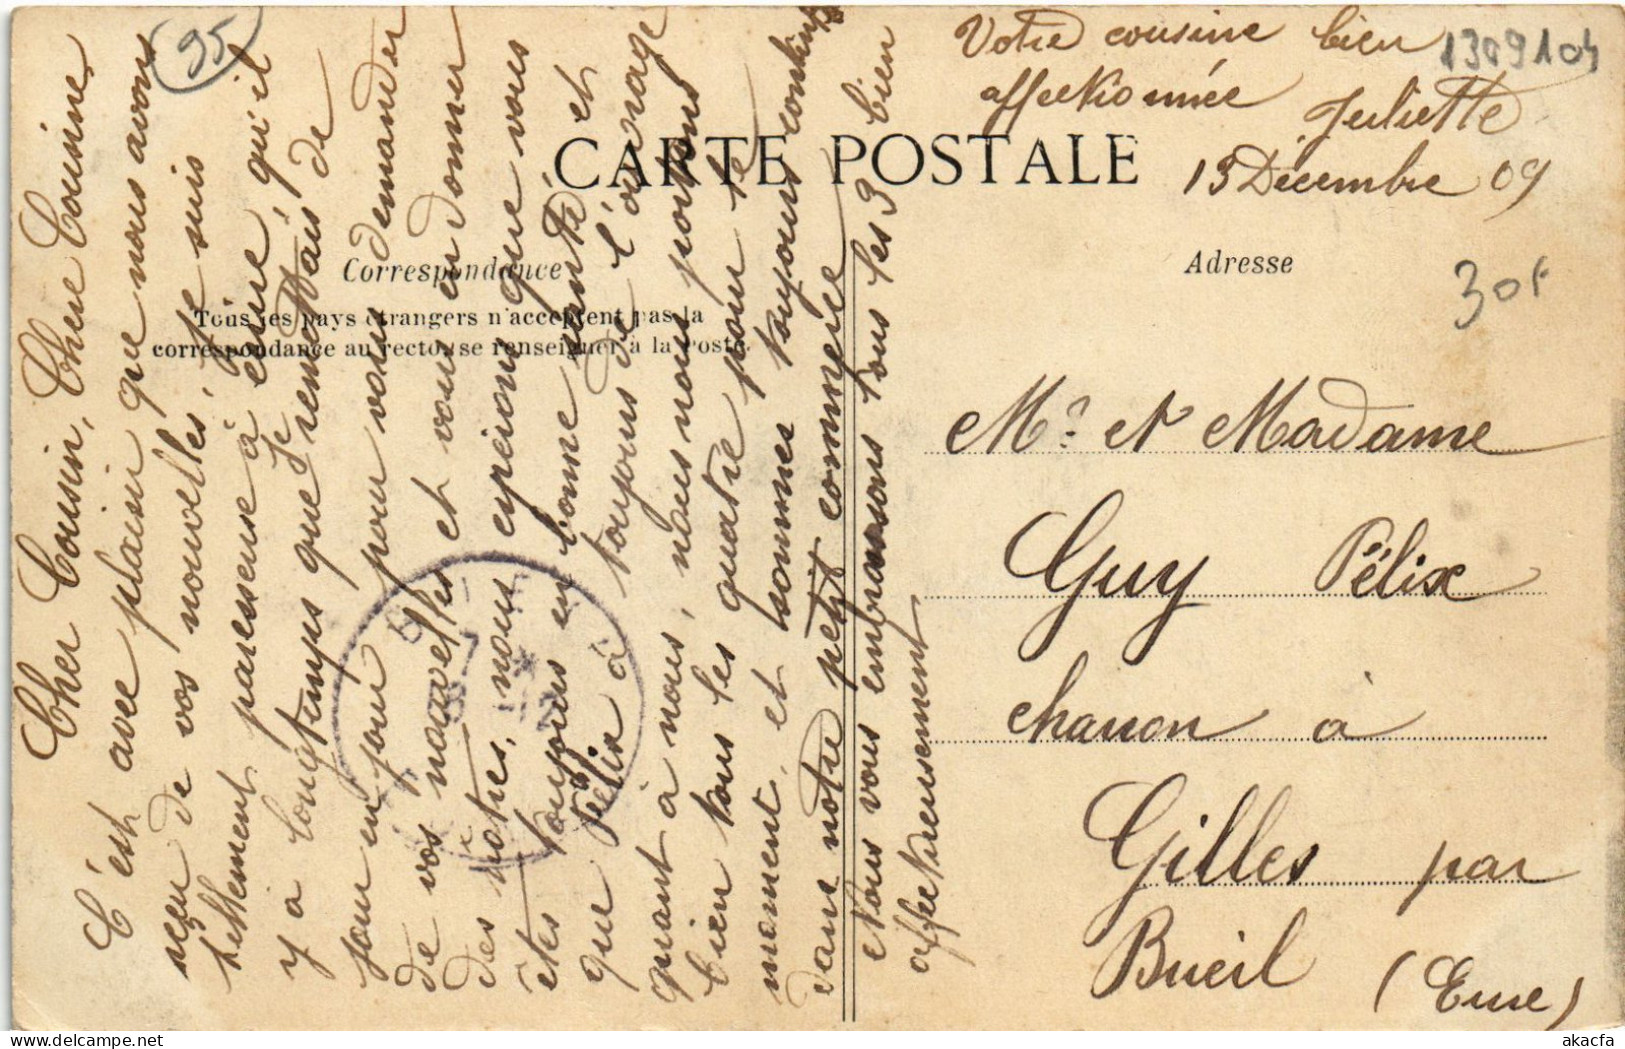 95
1309104
30f
CARTE POSTALE
Correspondance
Adresse
Tous les pays étrangers n'acceptent pas la
correspondance au recto, se renseigner à la Poste.
Cher Cousin, Chere Cousine,
C'est avec plaisir que nous avons
reçu de vos nouvelles, je suis
tellement paresseuse à écrire, qu'il
y a longtemps que je remettais de
jour en jour pour vous demander
de vos nouvelles et vous en donner
des notres, nous espérions que vous
êtes toujours en bonne santé et
que Félix à toujours de l'ouvrage
quant à nous, nous nous portons
bien tous les quatre pour le
moment, et sommes toujours contents
dans notre petit commerce
Nous vous embrassons tous les 3 bien
affectueusement
Votre cousine bien
affectionnée
Juliette
13 Décembre 09
Mr et Madame
Guy Félix
charron à
Gilles par
Bueil
(Eure)
akacfa